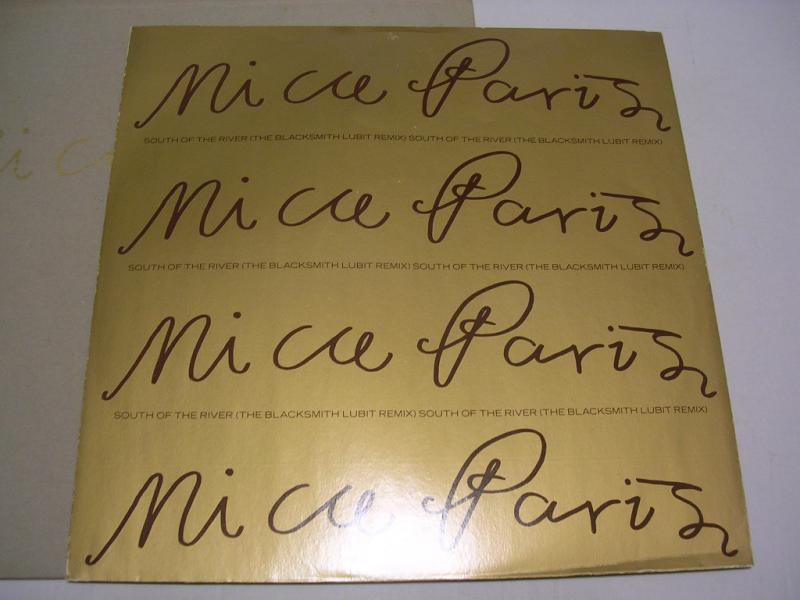 Mica Paris
SOUTH OF THE RIVER (THE BLACKSMITH LUBIT REMIX) SOUTH OF THE RIVER (THE BLACKSMITH LUBIT REMIX)
Mica Paris
SOUTH OF THE RIVER (THE BLACKSMITH LUBIT REMIX) SOUTH OF THE RIVER (THE BLACKSMITH LUBIT REMIX)
Mica Paris
SOUTH OF THE RIVER (THE BLACKSMITH LUBIT REMIX) SOUTH OF THE RIVER (THE BLACKSMITH LUBIT REMIX)
Mica Paris